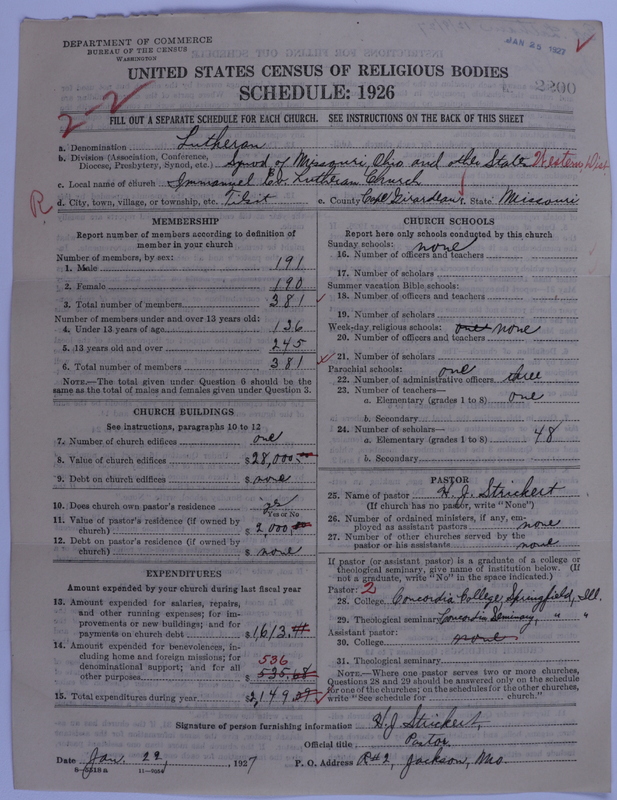 DEPARTMENT OF COMMERCE
BUREAU OF THE CENSUS
WASHINGTON
JAN 25 1927
UNITED STATES CENSUS OF RELIGIOUS BODIES
SCHEDULE: 1926
2200
2-2
FILL OUT A SEPARATE SCHEDULE FOR EACH CHURCH. SEE INSTRUCTIONS ON THE BACK OF THIS SHEET
a. Denomination Lutheran
b. Division (Association, Conference, Diocese, Presbytery, Synod, etc.) Synod of Missouri, Ohio and other States Western Dist
c. Local name of church Immanuel Ev. Lutheran Church
R
d. City, town, village, or township, etc. Tilsit e. County Cape Girardeau f. State Missouri
MEMBERSHIP
Report number of members according to definition of
member in your church
Number of members, by sex:
1. Male 191
2. Female 190
3. Total number of members 381
Number of members under and over 13 years old:
4. Under 13 years of age 136
5. 13 years old and over 245
6. Total number of members 381
NOTE.—The total given under Question 6 should be the
same as the total of males and females given under Question 3.
CHURCH BUILDINGS
See instructions, paragraphs 10 to 12
7. Number of church edifices one
8. Value of church edifices $28,000.00
9. Debt on church edifices $none
10. Does church own pastor's residence yes
Yes or No
11. Value of pastor's residence (if owned by
church) $2,000.00
12. Debt on pastor's residence (if owned by
church) $none
EXPENDITURES
Amount expended by your church during last fiscal year
13. Amount expended for salaries, repairs,
and other running expenses; for im-
provements or new buildings; and for
payments on church debt $1613.
14. Amount expended for benevolences, in-
cluding home and foreign missions; for
denominational support; and for all
other purposes 536 $535.68
15. Total expenditures during year $2,149
CHURCH SCHOOLS
Report here only schools conducted by this church
Sunday schools: none
16. Number of officers and teachers
17. Number of scholars
Summer vacation Bible schools:
18. Number of officers and teachers
19. Number of scholars
Week-day religious schools: none
20. Number of officers and teachers
21. Number of scholars
Parochial schools: one
22. Number of administrative officers three
23. Number of teachers—
a. Elementary (grades 1 to 8) one
b. Secondary
24. Number of scholars—
a. Elementary (grades 1 to 8) 48
b. Secondary
PASTOR
25. Name of pastor H. J. Strickert
(If church has no pastor, write "None")
26. Number of ordained ministers, if any, em-
ployed as assistant pastors none
27. Number of other churches served by the
pastor or his assistants none
If pastor (or assistant pastor) is a graduate of a college or
theological seminary, give name of institution below. (If
not a graduate, write "No" in the space indicated.)
Pastor: 2
28. College Concordia College Springfield, Ill.
29. Theological seminary Concordia Seminary, " "
Assistant pastor:
30. College none
31. Theological seminary
NOTE.—Where one pastor serves two or more churches,
Questions 28 and 29 should be answered only on the schedule
for one of the churches; on the schedules for the other churches,
write "See schedule for church."
Signature of person furnishing information H J Strickert,
Official title Pastor
Date Jan. 22, 1927 P. O. Address R#2, Jackson, Mo.
8-5518a 11-9084